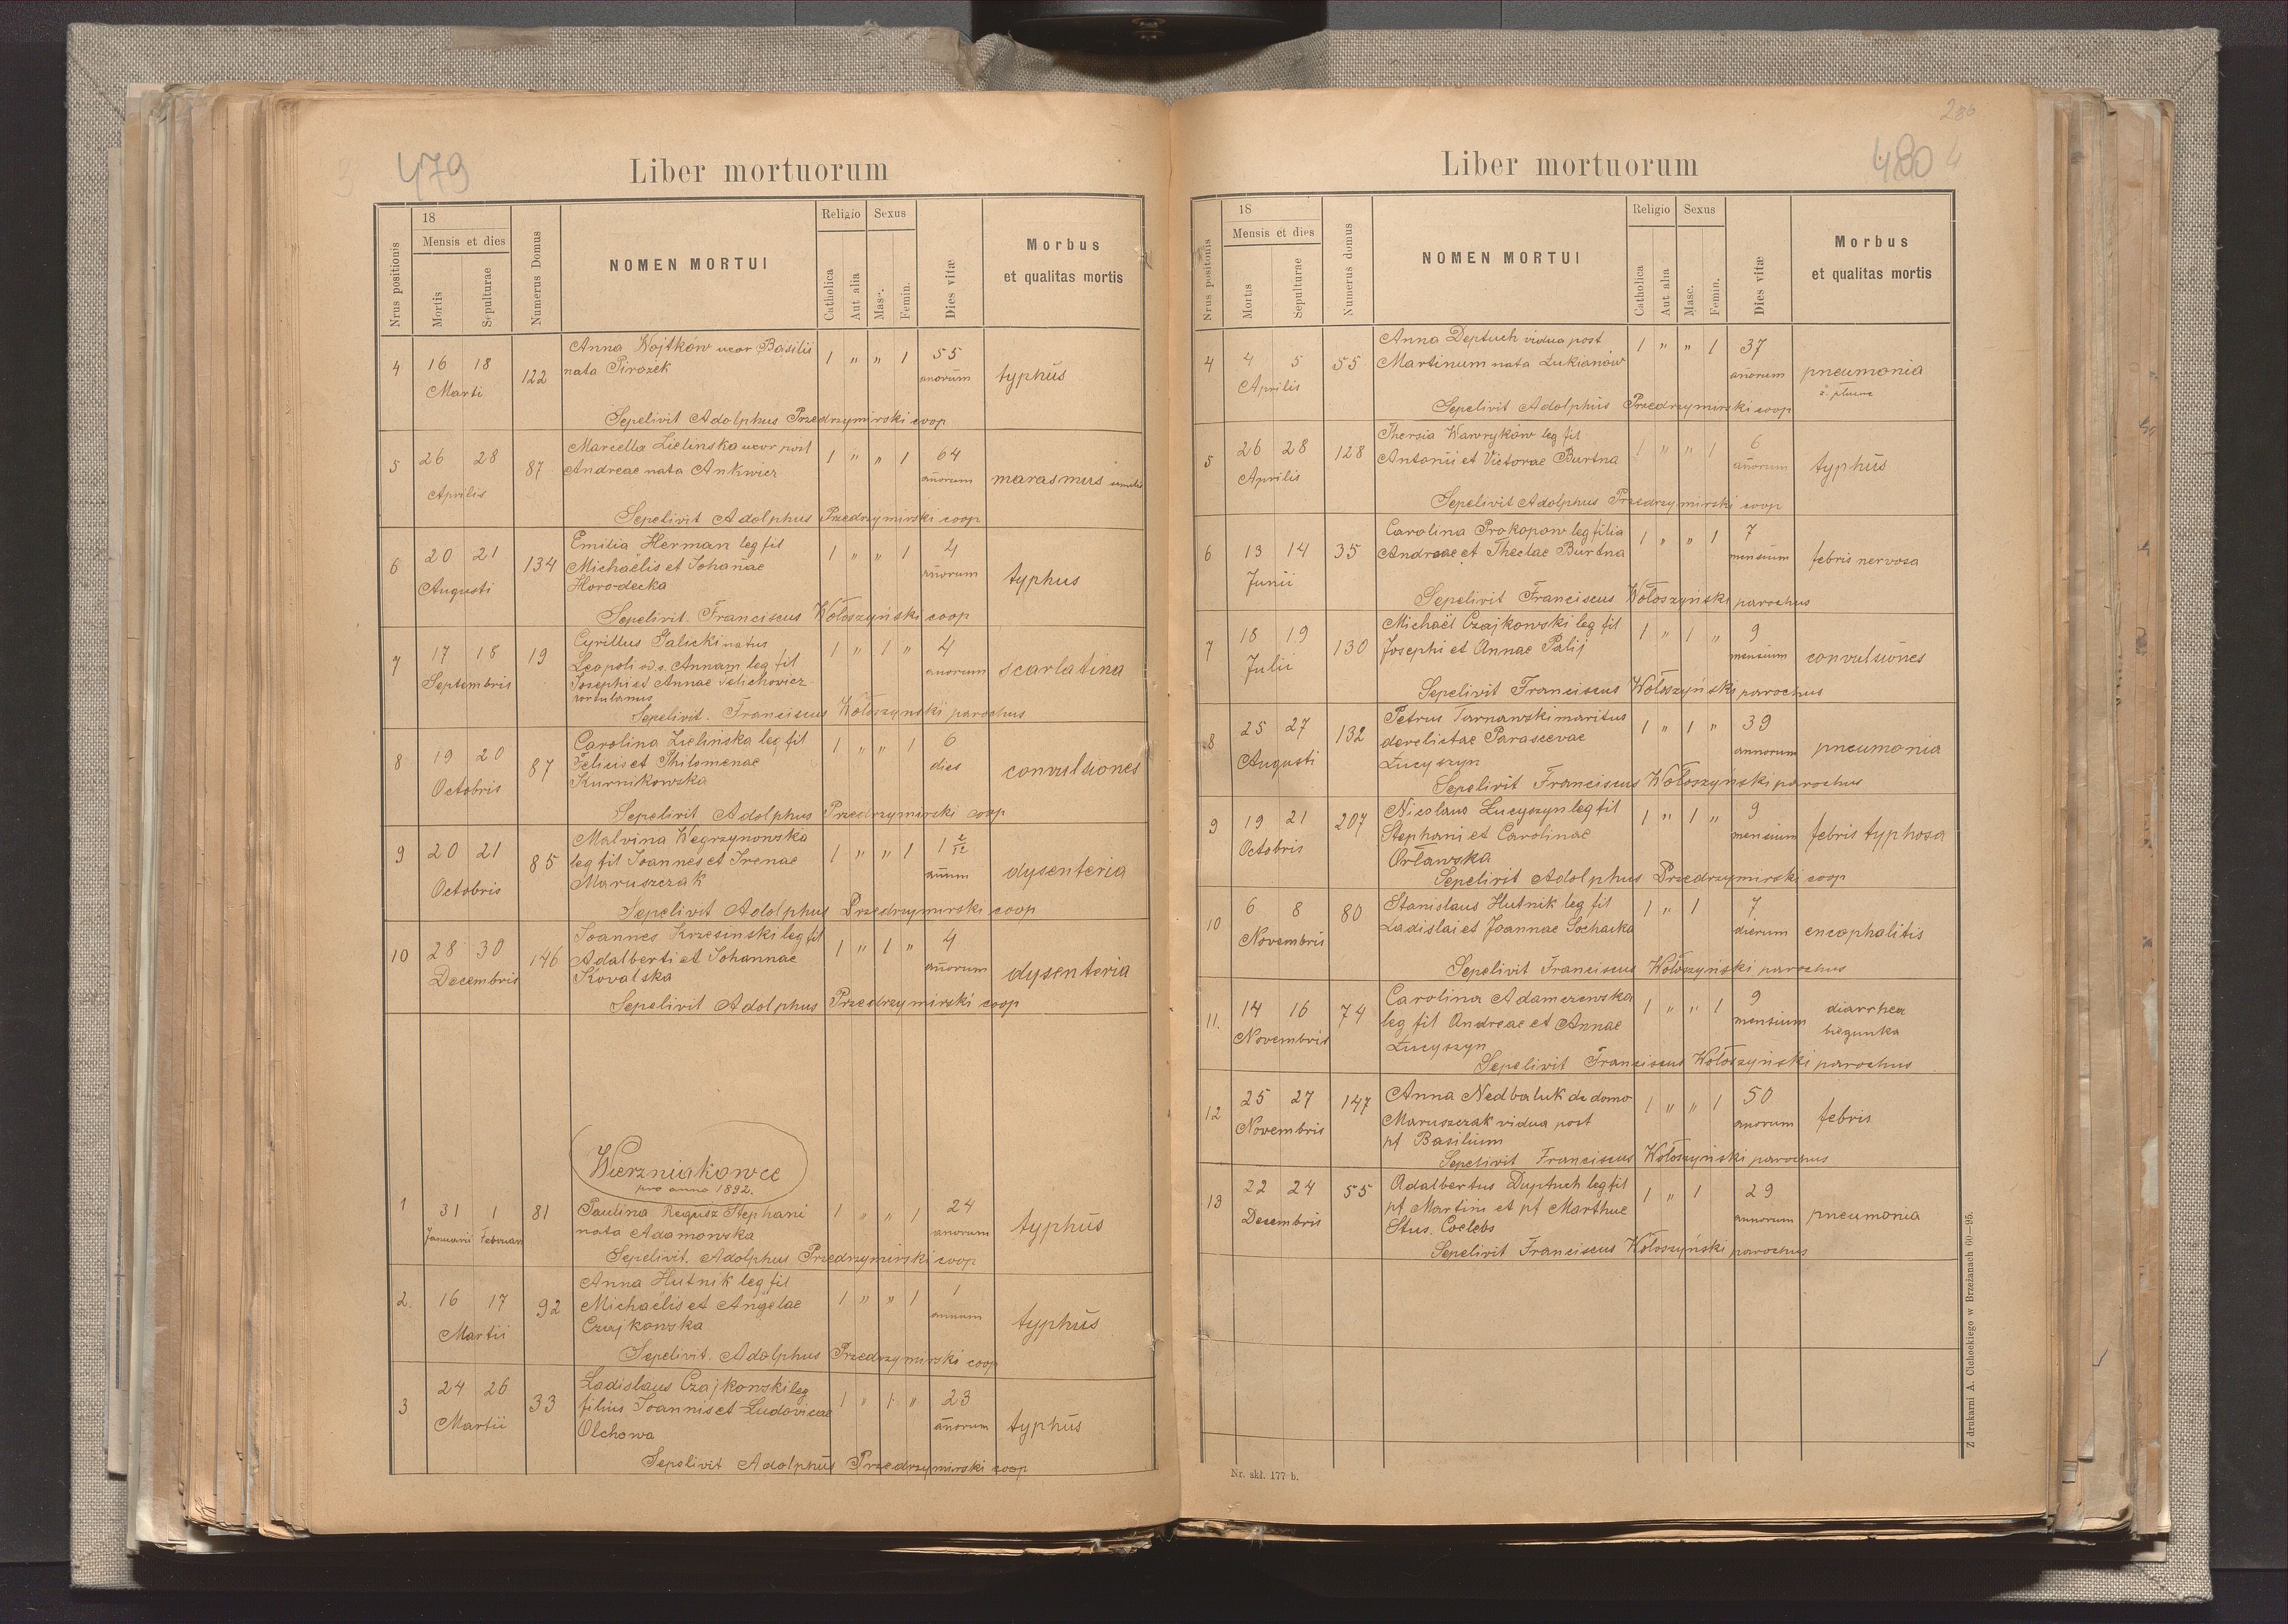 479
Liber mortuorum
Nrus positionis
18
Mensis et dies
Mortis
Sepulturae
Numerus Domus
NOMEN MORTUI
Religio
Catholica
Aut alia
Sexus
Masc.
Femin.
Dies vitæ
Morbus
et qualitas mortis
4 16 18 Marti 122
Anna Wojtków uxor Basilii
nata Pirożek
1 " " 1 55 anorum typhus
Sepelivit Adolphus Przedrzymirski coop
5 26 28 Aprilis 87
Marcella Zielinska uxor post
Andreae nata Ankwicz
1 " " 1 64 anorum marasmus
Sepelivit Adolphus Przedrzymirski coop
6 20 21 Augusti 134
Emilia Herman leg fil
Michaëlis et Johanae
Horodecka
1 " " 1 4 anorum typhus
Sepelivit. Franciscus Wołoszyński coop
7 17 18 Septembris 19
Cyrillus Galicki natus
Leopoli ad s. Annam leg fil
Josephi et Annae
1 " 1 " 4 anorum scarlatina
Sepelivit. Franciscus Wołoszynski parochus
8 19 20 Octobris 87
Carolina Zielińska leg fil
Felicis et Philomenae
Kurnikowska
1 " " 1 6 dies convulsiones
Sepelivit Adolphus Przedrzymirski coop
9 20 21 Octobris 85
Malvina Wegrzynowska
leg fil Joannes et Irenae
Maruszczak
1 " " 1 1 2/12 anum dysenteria
Sepelivit Adolphus Przedrzymirski coop
10 28 30 Decembris 176
Joannes Krzesinski leg fil
Adalberti et Johannae
Kovalska
1 " 1 " 4 anorum dysenteria
Sepelivit Adolphus Przedrzymirski coop
Wierzniakowce
pro anno 1892.
1 31 1 Januarii Februari 81
Paulina Regusz Stephani
nata Adamowska
1 " " 1 24 anorum typhus
Sepelivit. Adolphus Przedrzymirski coop
2. 16 17 Martii 92
Anna Hutnik leg fil
Michaëlis et Angelae
Czajkowska
1 " " 1 1 annum typhus
Sepelivit. Adolphus Przedrzymirski coop
3 24 26 Martii 33
Ladislaus Czajkowski leg
filius Joannis et Ludovicae
Olchowa
1 " 1 " 23 anorum typhus
Sepelivit Adolphus Przedrzymirski coop
286
480
4
Liber mortuorum
Nrus positionis
18
Mensis et dies
Mortis
Sepulturae
Numerus domus
NOMEN MORTUI
Religio
Catholica
Aut alia
Sexus
Masc.
Femin.
Dies vitæ
Morbus
et qualitas mortis
4 4 5 Aprilis 55
Anna Deptuch vidua post
Martinum nata Łukianów
1 " " 1 37 anorum pneumonia
Sepelivit Adolphus Przedrzymirski coop
5 26 28 Aprilis 128
Thersia Wawryków leg fil
Antonii et Victorae Burtna
1 " " 1 6 anorum typhus
Sepelivit Adolphus Przedrzymirski coop
6 13 14 Junii 35
Carolina Prokopow leg filia
Andreae et Theclae Burtna
1 " " 1 7 mensium febris nervosa
Sepelivit Franciscus Wołoszyński parochus
7 18 19 Julii 130
Michaël Czajkowski leg fil
Josephi et Annae Palij
1 " 1 " 9 mensium convulsiones
Sepelivit Franciscus Wołoszyński parochus
8 25 27 Augusti 132
Petrus Tarnawski maritus
derelictae Parascevae
Łucyszyn
1 " 1 " 39 annorum pneumonia
Sepelivit Franciscus Wołoszyński parochus
9 19 21 Octobris 207
Nicolaus Łucyszyn leg fil
Stephani et Carolinae
Orławska
1 " 1 " 9 mensium febris typhosa
Sepelivit Adolphus Przedrzymirski coop
10 6 8 Novembris 80
Stanislaus Hutnik leg fil
Ladislai et Joannae Sochacka
1 " 1 7 dierum encephalitis
Sepelivit Franciscus Wołoszyński parochus
11. 14 16 Novembris 74
Carolina Adamczewska
leg fil Andreae et Annae
Łucyszyn
1 " " 1 9 mensium diarrhea
biegunka
Sepelivit Franciscus Wołoszyński parochus
12 25 27 Novembris 147
Anna Nedbaluk de domo
Maruszczak vidua post
pt Basilium
1 " " 1 50 anorum febris
Sepelivit Franciscus Wołoszyński parochus
13 22 24 Decembris 55
Adalbertus Duptuch leg fil
pt Martini et pt Marthae
Stus. Coelebs
1 " 1 29 annorum pneumonia
Sepelivit Franciscus Wołoszyński parochus
Nr. skł. 177 b.
Z drukarni A. Cichockiego w Brzeżanach 60—95.